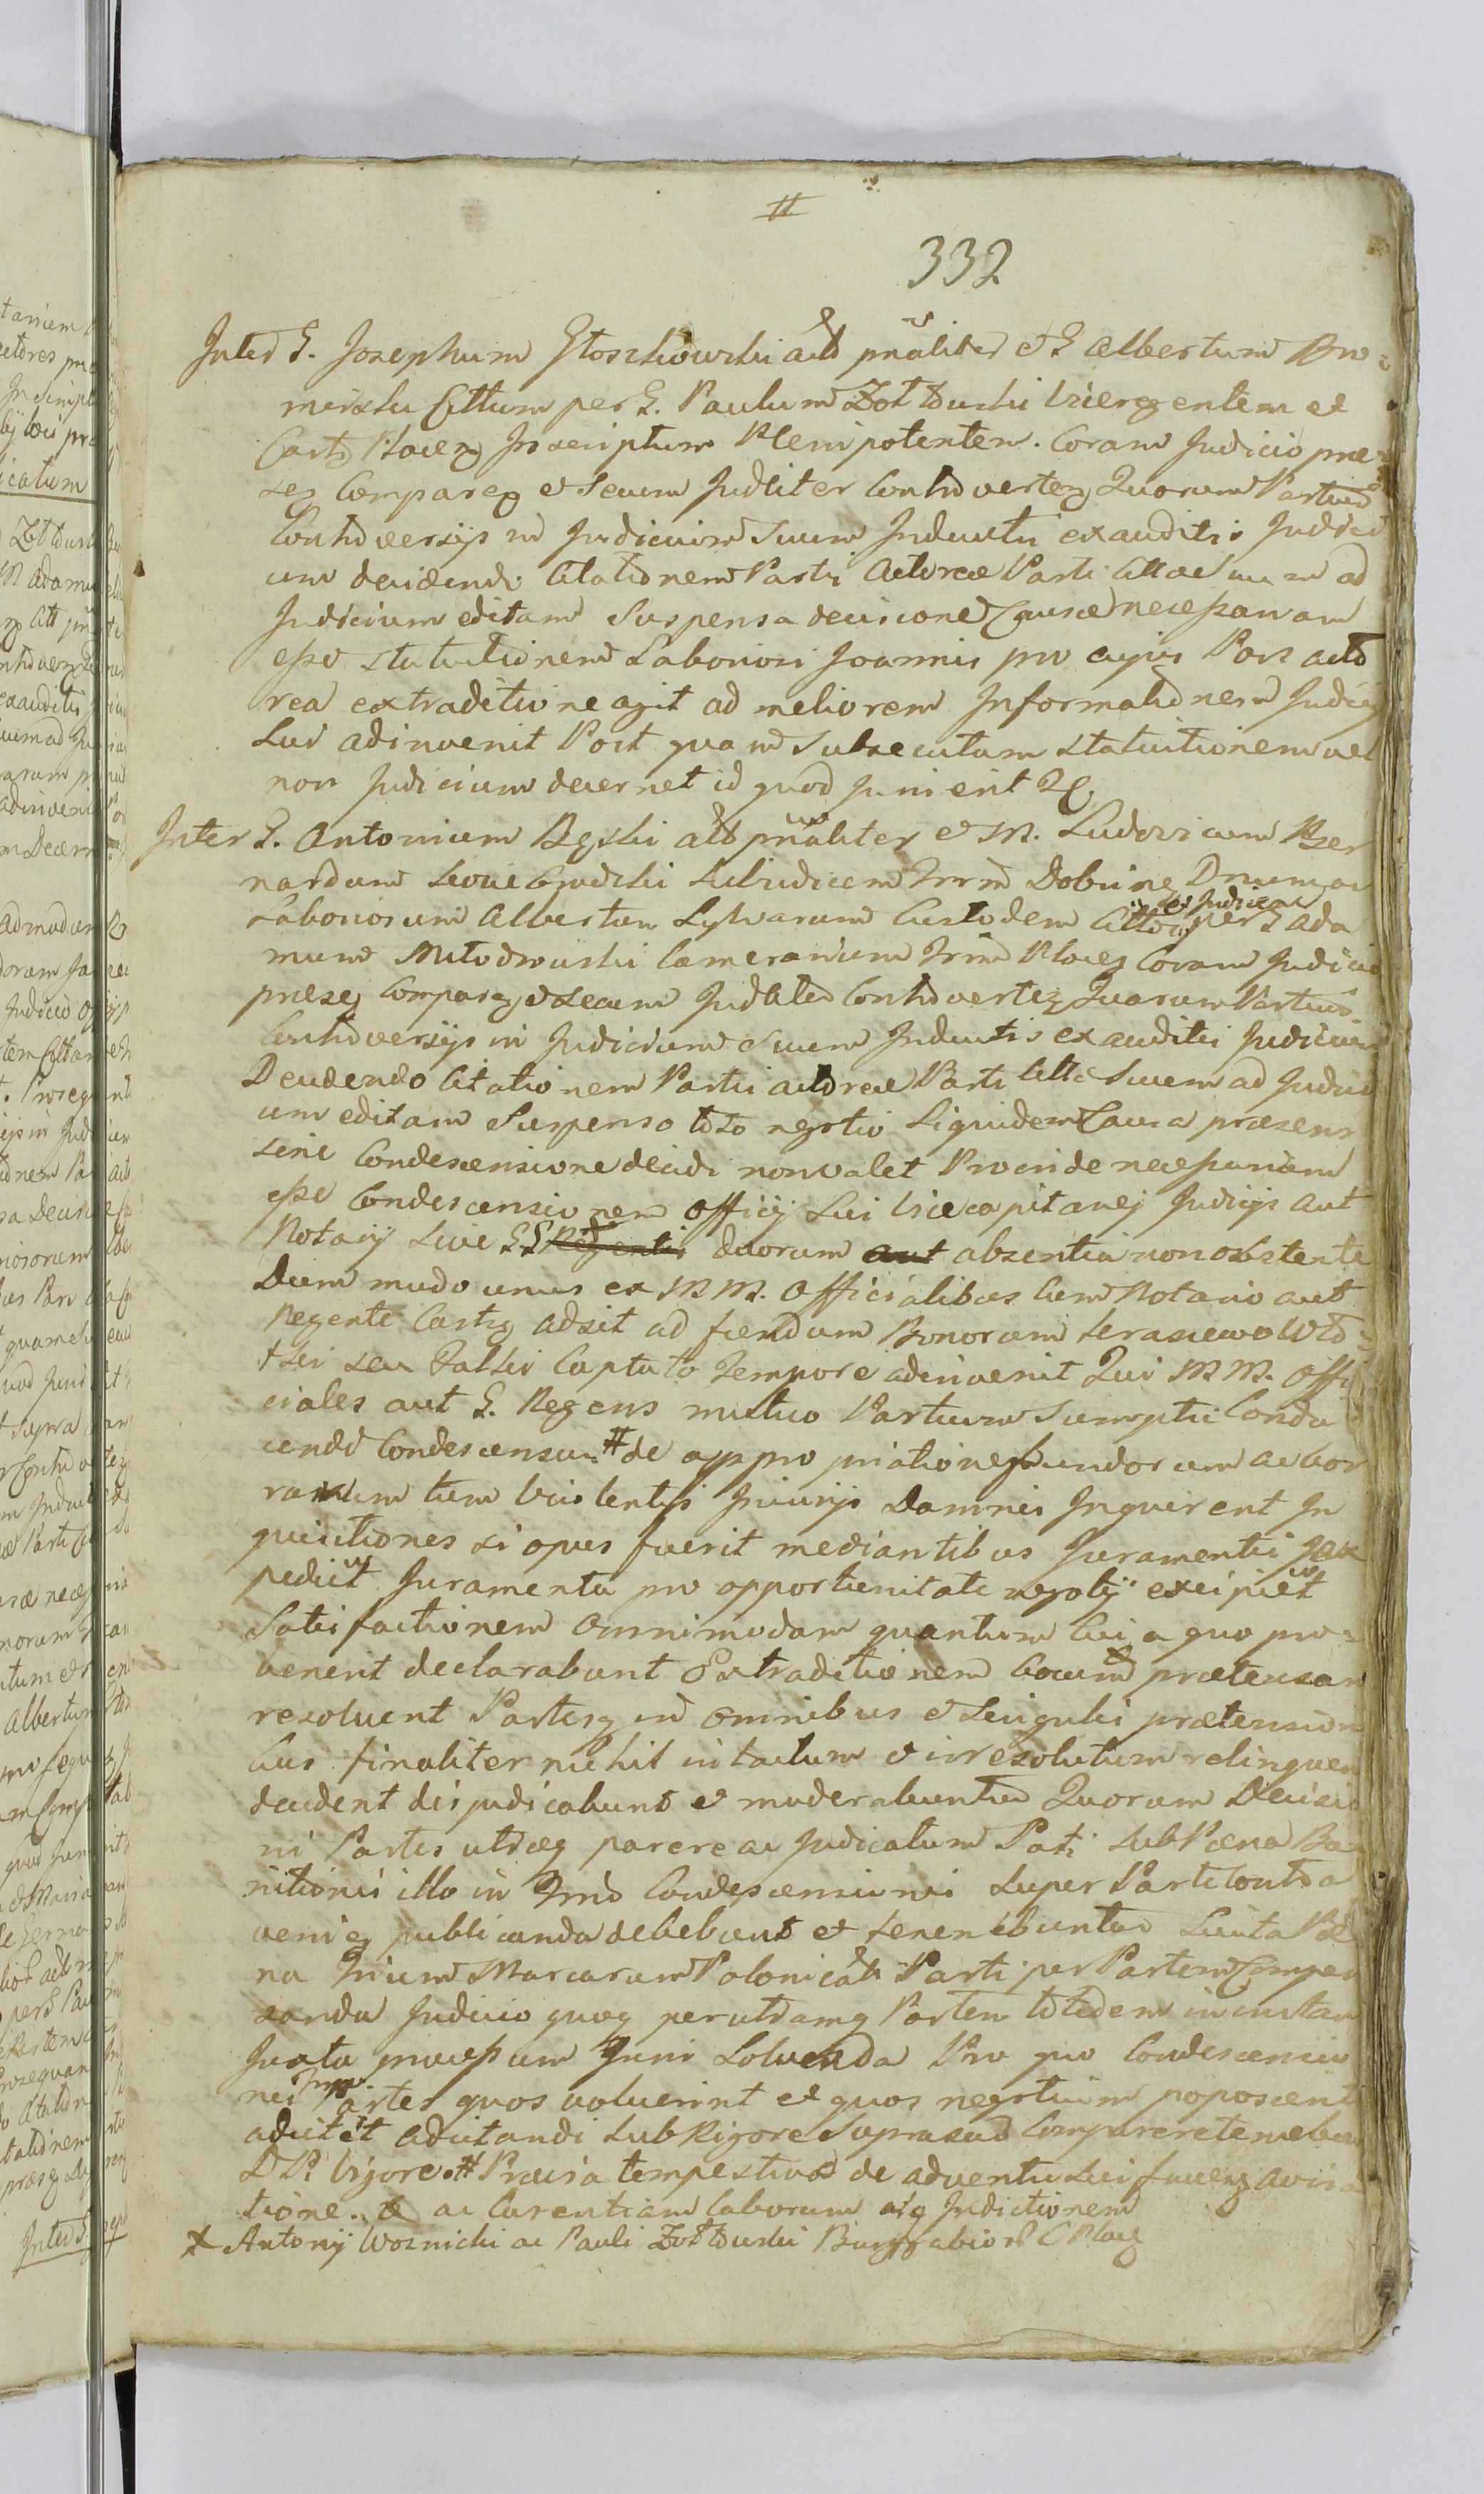 #
332
Inter G. Josephum Głoszkowski actō pnāliter et G Albertum Bro=
mirski Cittum per G. Paulum Żołtowski Viceregentem et
Castr Plocen Inscriptum Plenipotentem. Coram Judicio præ=
sen Comparen et Secum Judliter Controverten Quorum Partium
Controversys in Judicium Suum Inductis exauditis Judici
um decidendo Citationem Partis Actoreæ Parti Cittæ Suum ad
Judicium editam Suspensa decisione Causæ necessariam
esse statuitionem Laboriosi Joannis pro cujus Pars acto
rea extraditione agit ad meliorem Informationem Judicij
Sui adinvenit Post quam Subsecutam statuitionem vel
non Judicium decernet id quod Juri erit &c
Inter G. Antonium Ręski actō pnāliter et M. Ludovicum Ber
nardum Subiudicem Trrm Dobrinen Dnum ac
Laboriosum Albertum Sylvarum Custodem Cittos per G Ada
mum Młodowski Camerarium Trrm Plocen Coram Judicio
præsen Comparen et Secum Judliter Controverten Quorum Partium
Controversys in Judicium Suum Inductis exauditis Judicium
Decidendo Citationem Partis actoreæ Parti Cittæ Suum ad Judici
um editam Suspenso toto negotio Siquidem Causa præsens
sine Condescensione decidi non valet Proinde necessariam
esse Condescensionem Officij Sui Vicecapitanej Judicys aut
Notarij Sive GG Regentis duorum aut absentia non obstante
Dum modo unus ex MM. Officialibus Cum Notario aut
Regente Castren adsit ad fundum Bonorum
seu Captato Tempore adinvenit Qui MM. Offi
ciales aut G. Regens mutuo Partium Sumptu Condu
cendi Condescensuri # de appropriatione fundorum ac bor
rarum tum Violentys Iniurijs Damnis Inquirent In
quisitiones si opus fuerit mediantibus Juramentis
pedient Juramenta pro opportunitate negotij excipient
Satisfactionem omnimodam quantum Cui a quo pro=
venerit declarabunt Extraditionem prætensam
resolvent Partesq in omnibus et Singulis prætensioni
bus finaliter nichil intactum et irresolutum relinquen
decident dijudicabunt et moderabuntur Quorum Decisio
ni Partes utræq parere ac Judicatum Pati sub Pæna Ba
nitionis illo in Trrō Condescensionis super Parte Contra
venien publicanda debebunt et tenenebuntur Salva Pæ
na Trium Marcarum Polonicali Parti per Partem Compen
sanda Judicio quoq per utramq Partem totidem in instanti
Juxta processum Juris Solvenda Pro quo Condescensio
nis Trrō Partes quos voluerint et quos negotium poposcerit
adcitēt adcitandi sub Rigore Suprascrd Comparere tenebun
D Pti Vigore. # Prævia tempestiva de adventu Sui facien avisa
tione. & ac Carentiam Laborum atq Indictionem
# Antonij Woznicki ac Pauli Żołtowski Burgrabior C Plocen